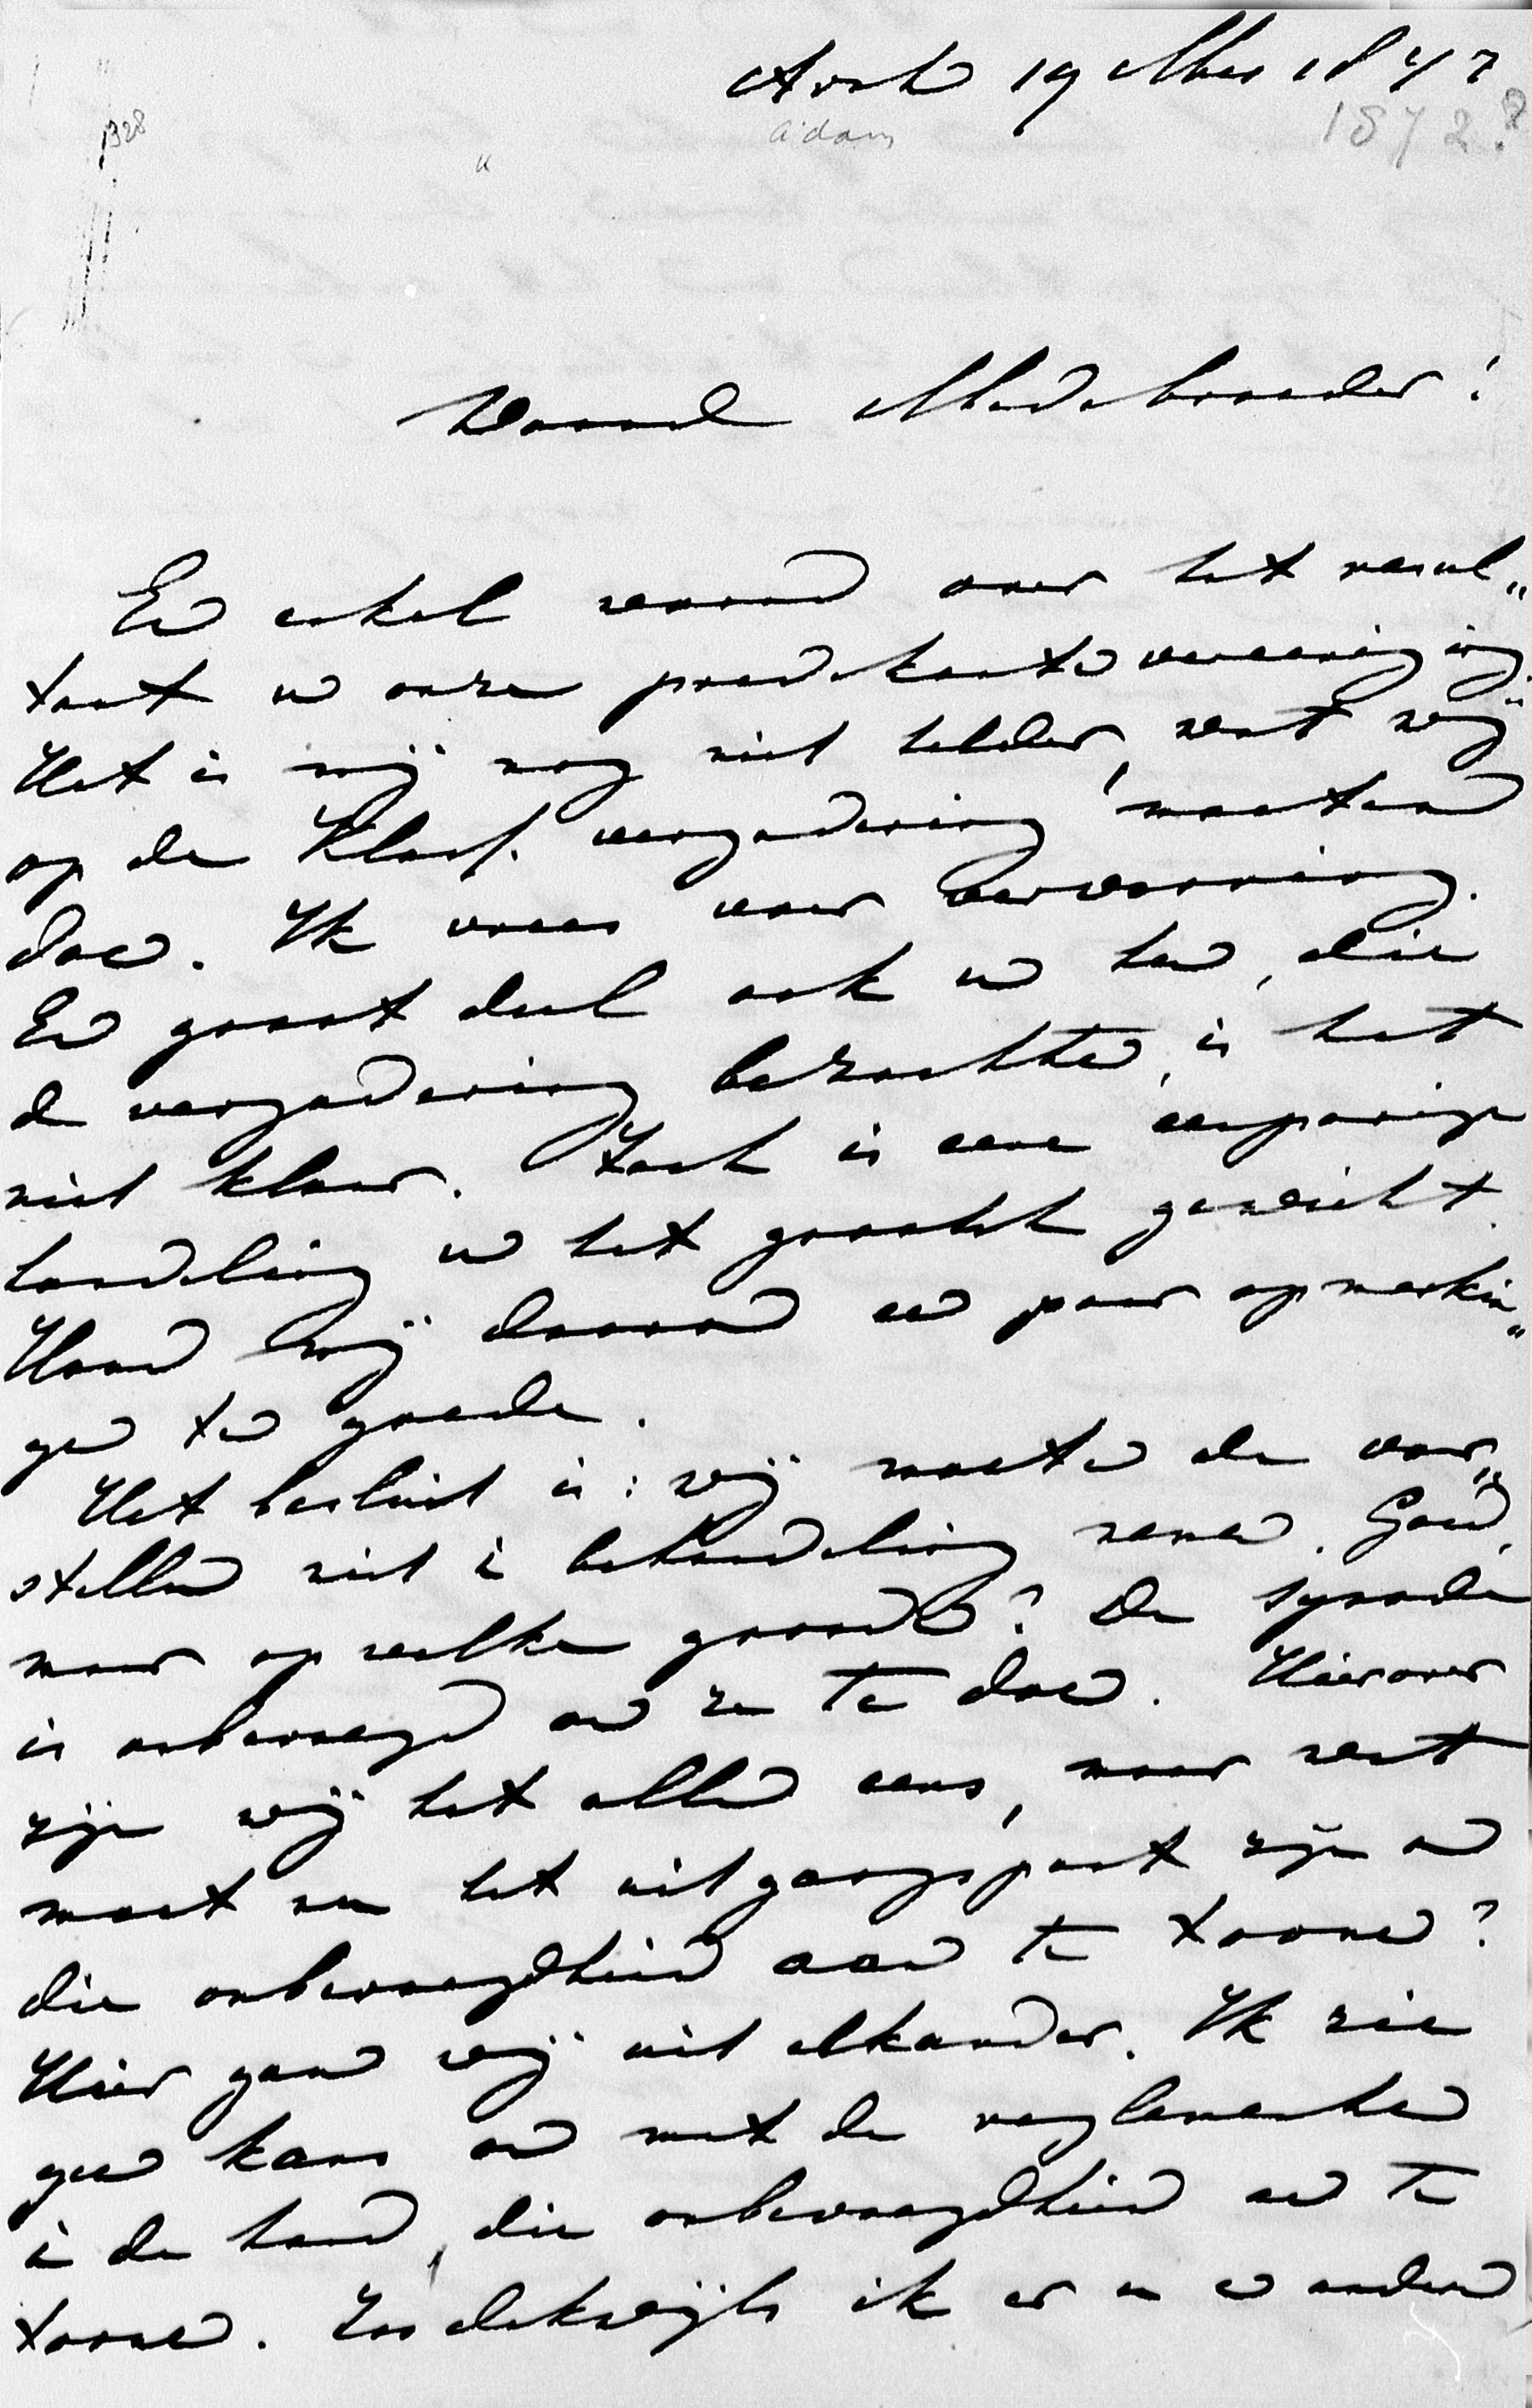 Amst 19 Mei 1847
Adam 1872?
1328
Waarde Medebroeder!
Een enkel woord over het resul„
taat v. onze predikantenvereeniging.
Het is mij nog niet helder, wat wij
op de Klass. vergadering moeten
doen. Ik vrees voor verwarring.
Een groot deel ook v. hen, die
de vergadering bezochten, is het
niet klaar. Toch is eene eenparige
handeling v. het grootste gewicht.
Houd mij daarom een paar opmerkin„
gen ten goede.
Het besluit is: wij moeten de voor„
stellen niet in behandeling nemen. Goed,
maar op welke grond? De synode
is onbevoegd om ze te doen. Hierover
zijn wij het allen eens, maar wat
moet nu het uitgangspunt zijn om
die onbevoegdheid aan te toonen?
Hier gaan wij uit elkander. Ik zie
geen kans om met de reglementen
in de hand, die onbevoegdheid aan te
toonen. Zoo dikwijls ik er een v. anderen